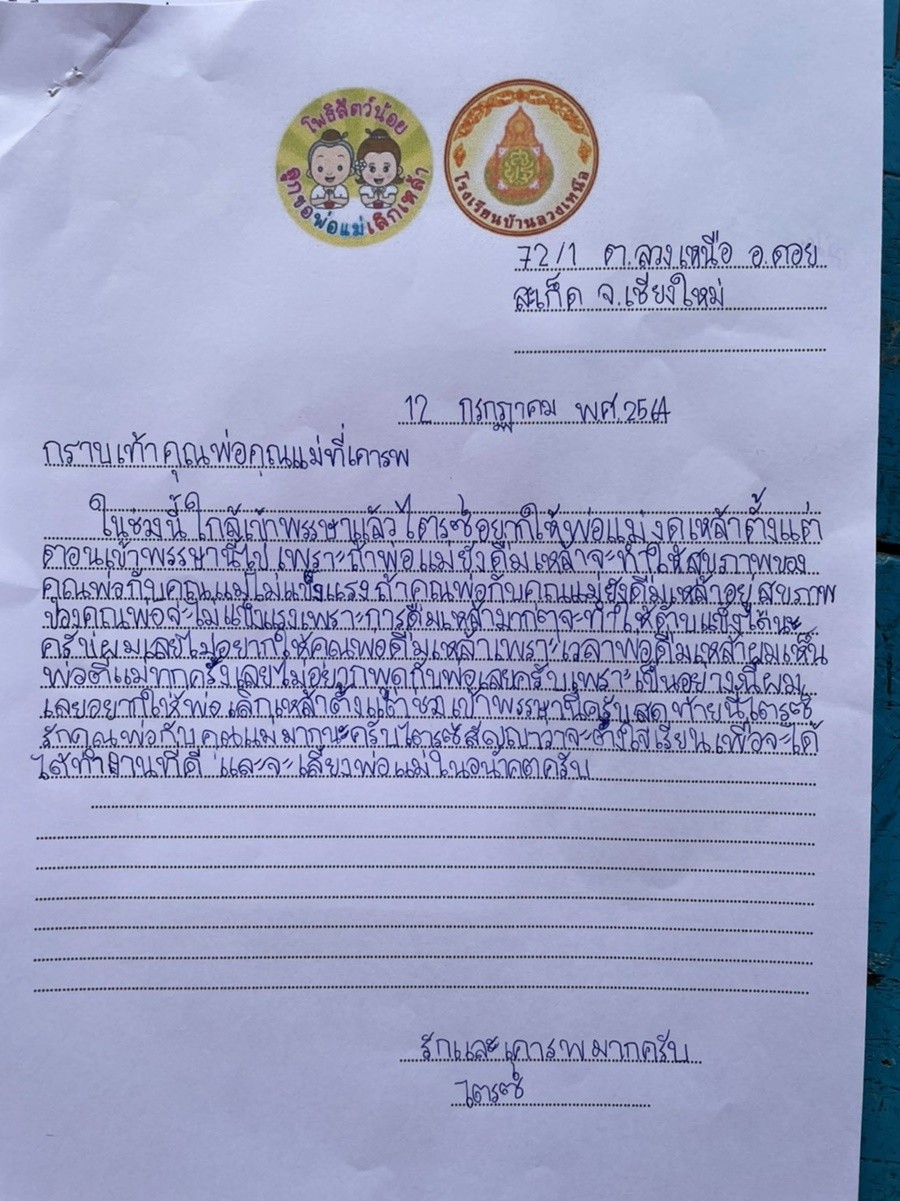 โพธิสัตว์น้อย
ลูกขอพ่อแม่เลิกเหล้า
โรงเรียนบ้านลวงเหนือ
72/1 ต.ลวงเหนือ อ.ดอย
สะเก็ด จ.เชียงใหม่
12 กรกฎาคม พศ.2564
กราบเท้าคุณพ่อคุณแม่ที่เคารพ
ในช่วงนี้ใกล้เข้าพรรษาแล้วไตรซ์อยากให้พ่อแม่งดเหล้าตั้งแต่
ตอนเข้าพรรษานี้ไป เพราะถ้าพ่อแม่ยังดื่มเหล้าจะทำให้สุขภาพของ
คุณพ่อกับคุณแม่ไม่แข็งแรงถ้าคุณพ่อกับคุณแม่ยังดื่มเหล้าอยู่สุขภาพ
ของคุณพ่อจะไม่แข็งแรงเพราะการดื่มเหล้ามากๆจะทำให้ตับแข็งได้นะ
ครับผมเลยไม่อยากให้คุณพ่อดื่มเหล้าเพราะเวลาพ่อดื่มเหล้าผมเห็น
พ่อตีแม่ทุกครั้งเลยไม่อยากพูดกับพ่อเลยครับเพราะเป็นอย่างนี้ผม
เลยอยากให้พ่อเลิกเหล้าตั้งแต่ช่วงเข้าพรรษานี้ครับสุดท้ายนี้ไตรซ์
รักคุณพ่อกับคุณแม่มากนะครับไตรซ์สัญญาว่าจะตั้งใจเรียนเพื่อจะได้
ได้ทำงานที่ดี และจะเลี้ยงพ่อแม่ในอนาคตครับ
รักและเคารพมากครับ
ไตรซ์